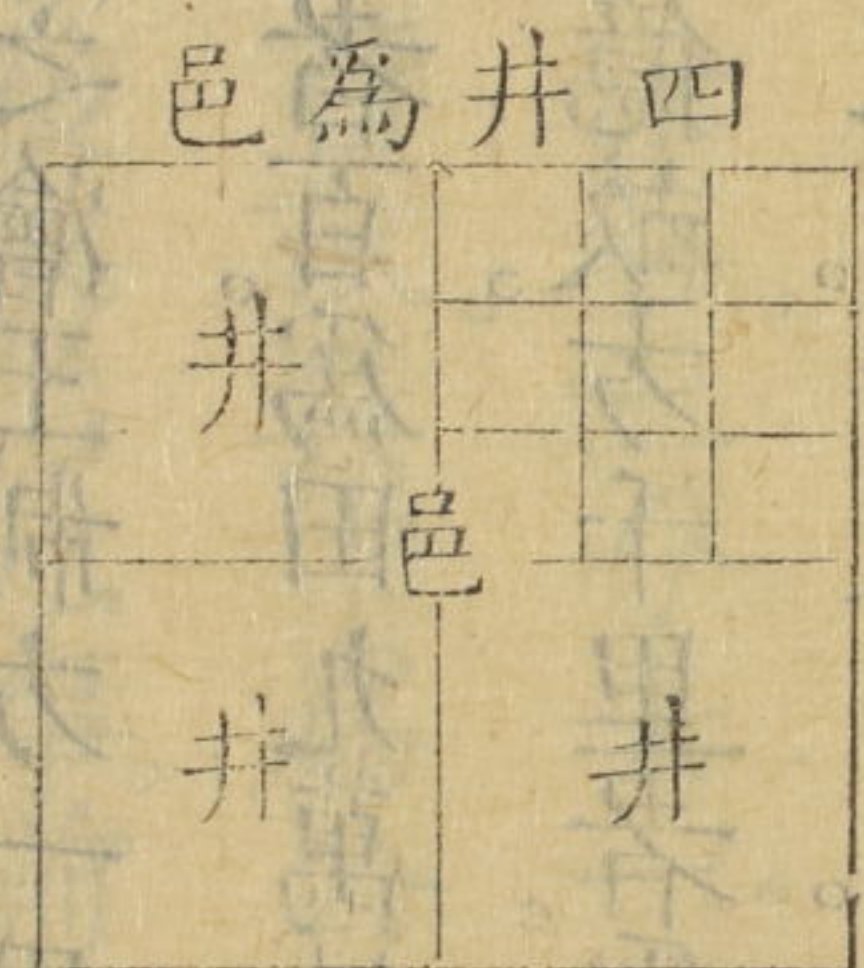 四井為邑
井
邑
井
井